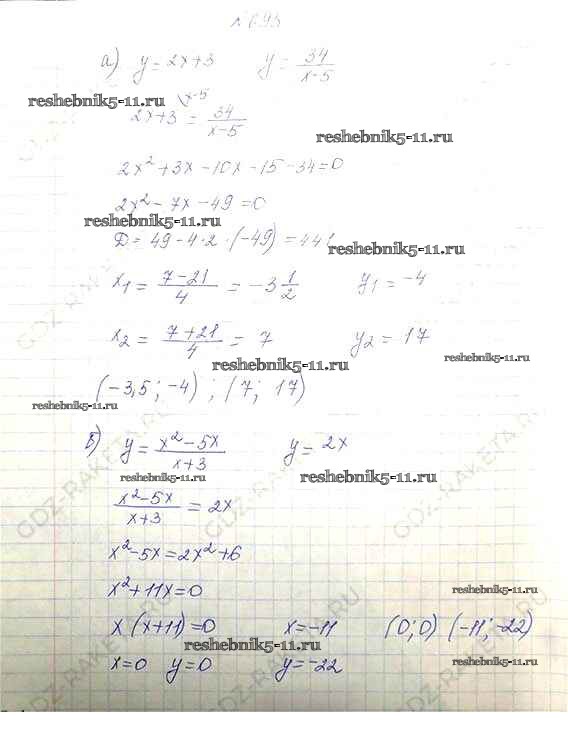 а) y = 2x+3 y = 34/(x-5)
x-5
reshebnik5-11.ru
2x+3 = 34/(x-5)
reshebnik5-11.ru
2x² + 3x - 10x - 15 - 34 = 0
2x² - 7x - 49 = 0
reshebnik5-11.ru
D = 49 - 4·2·(-49) = 441
reshebnik5-11.ru
x₁ = (7-21)/4 = -3 1/2 y₁ = -4
x₂ = (7+21)/4 = 7 y₂ = 17
reshebnik5-11.ru reshebnik5-11.ru
(-3,5; -4) ; (7; 17)
reshebnik5-11.ru
б) y = (x²-5x)/(x+3) y = 2x
reshebnik5-11.ru reshebnik5-11.ru
(x²-5x)/(x+3) = 2x
x²-5x = 2x²+6
x²+11x = 0
reshebnik5-11.ru
x(x+11) = 0 x = -11 (0; 0) (-11; -22)
reshebnik5-11.ru
x = 0 y = 0 y = -22
reshebnik5-11.ru
GDZ-RAKETA.RU
GDZ-RAKETA.RU
GDZ-RAKETA.RU